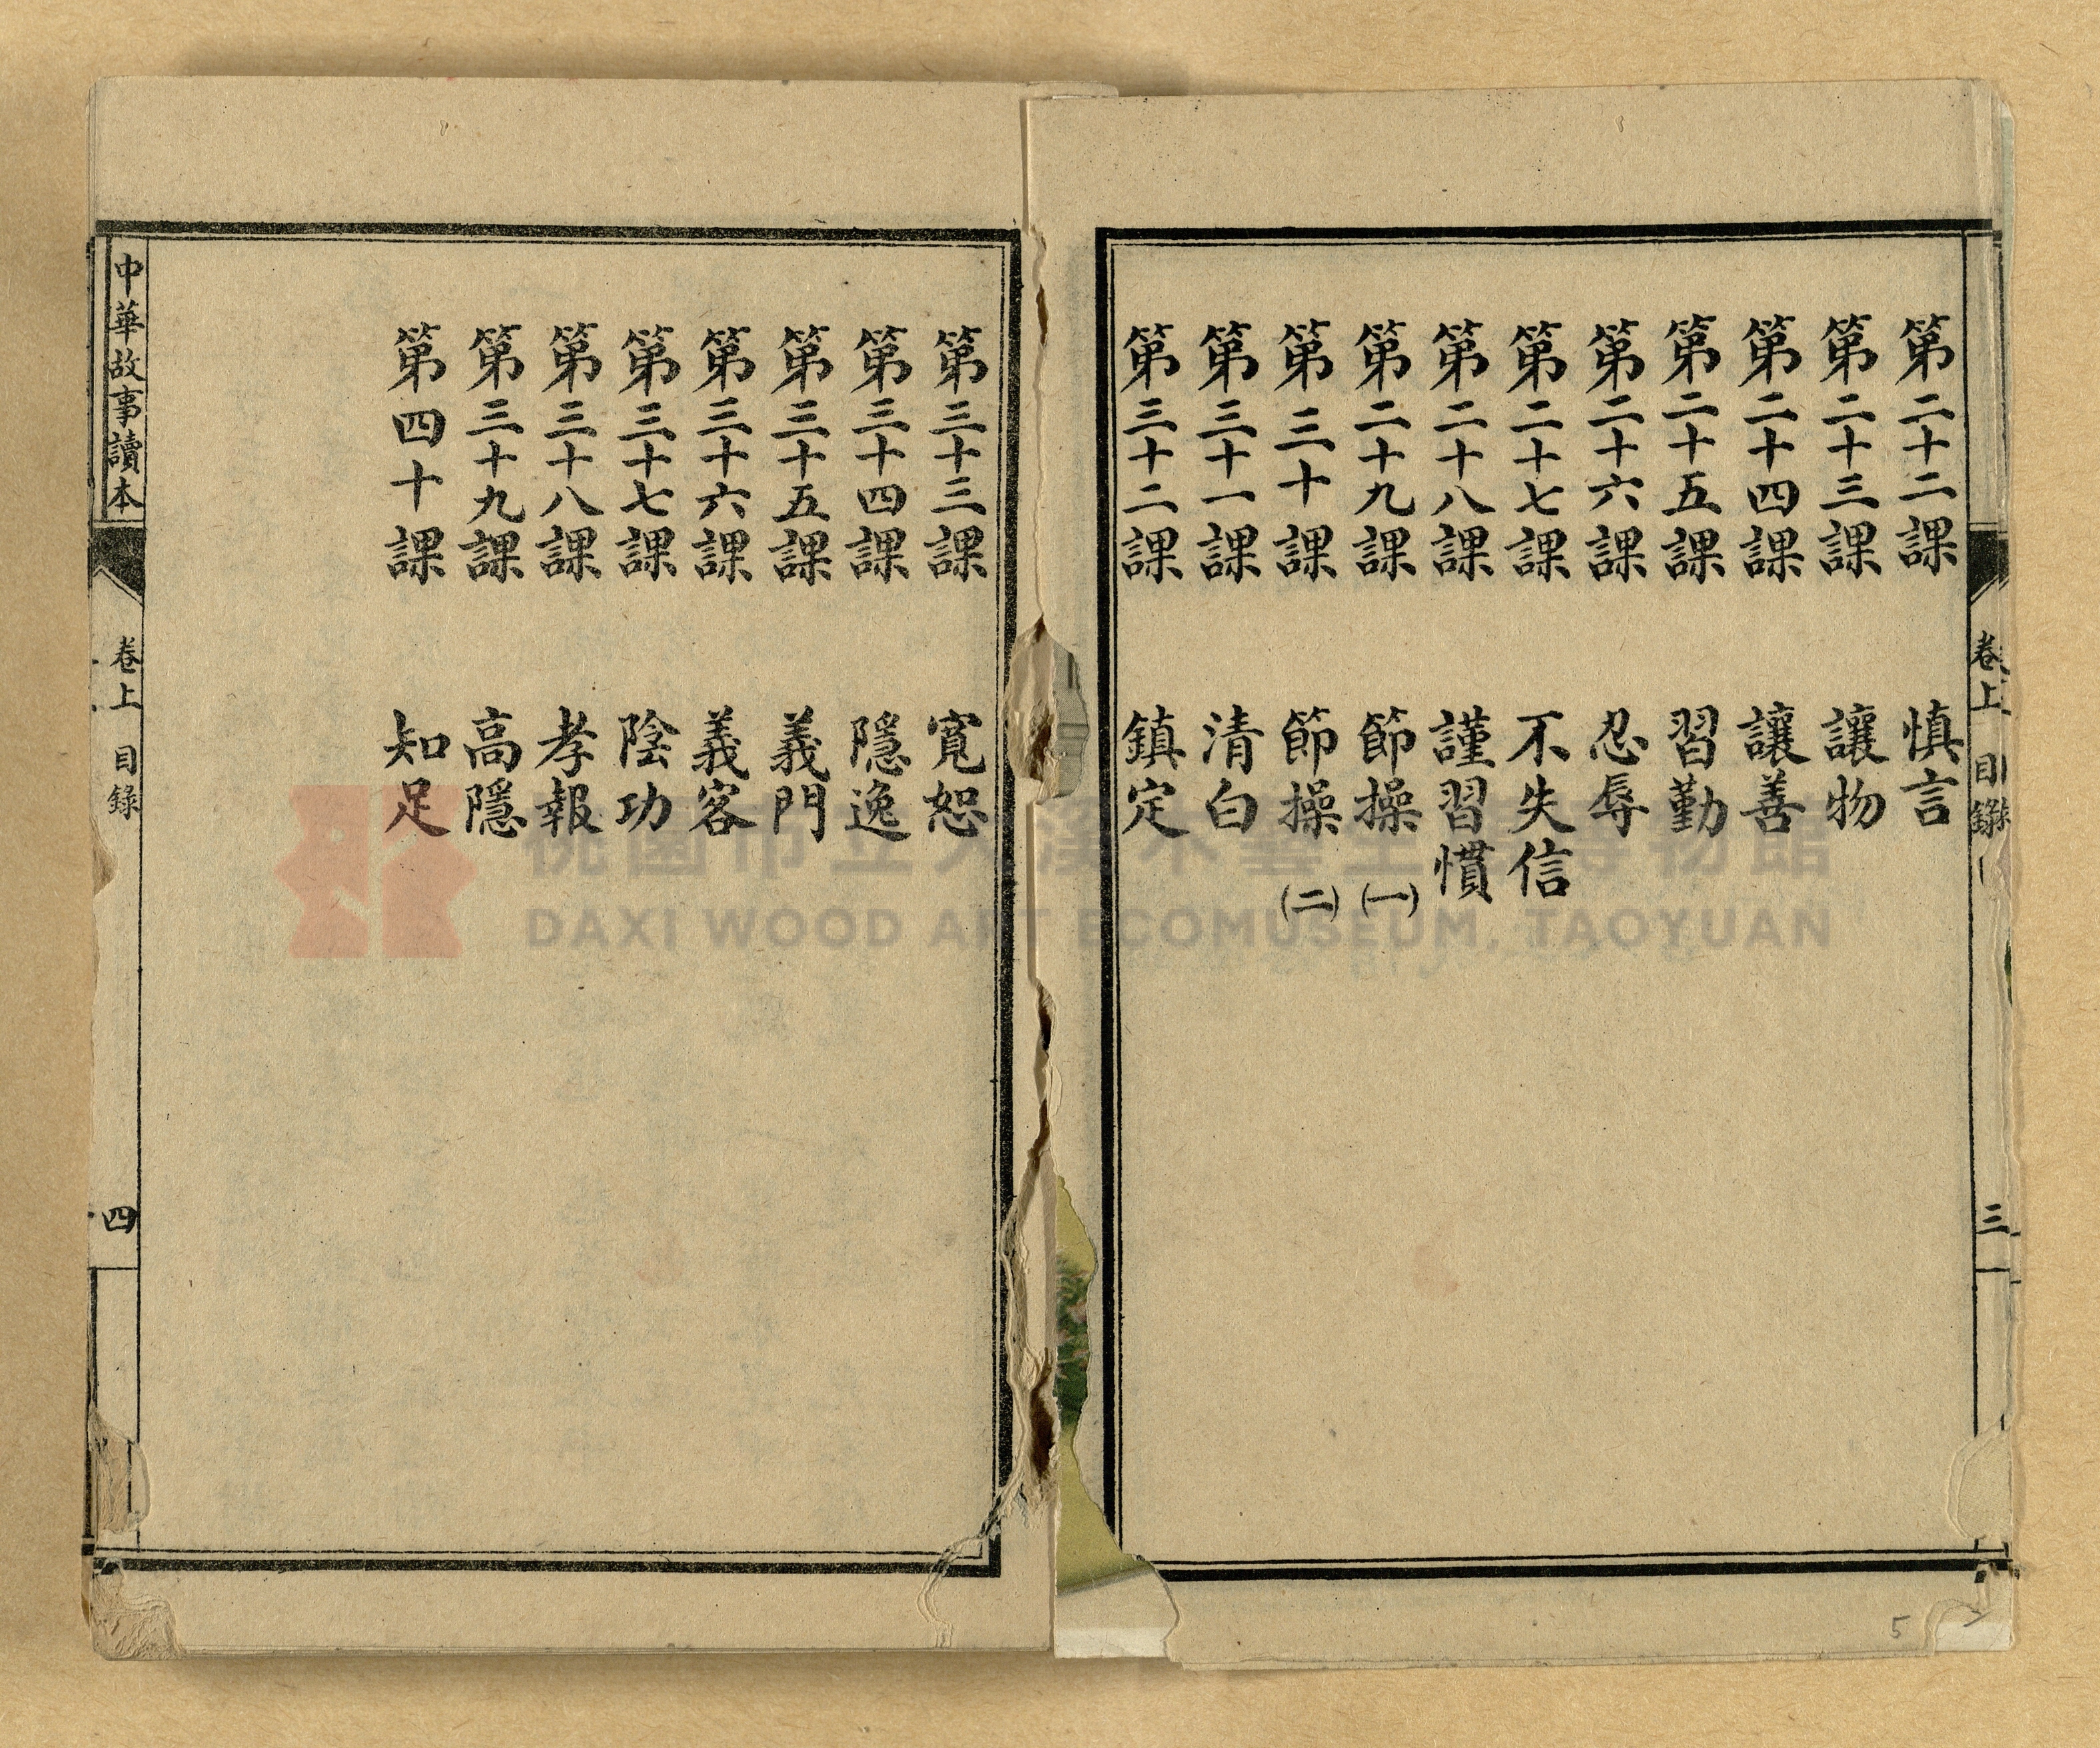 卷上 目錄
三
第二十二課 慎言
第二十三課 讓物
第二十四課 讓善
第二十五課 習勤
第二十六課 忍辱
第二十七課 不失信
第二十八課 謹習慣
第二十九課 節操(一)
第三十課 節操(二)
第三十一課 清白
第三十二課 鎮定
第三十三課 寬恕
第三十四課 隱逸
第三十五課 義門
第三十六課 義客
第三十七課 陰功
第三十八課 孝報
第三十九課 高隱
第四十課 知足
中華故事讀本
卷上 目錄
四
桃園市立大溪木藝生態博物館
DAXI WOOD ART ECOMUSEUM, TAOYUAN
5